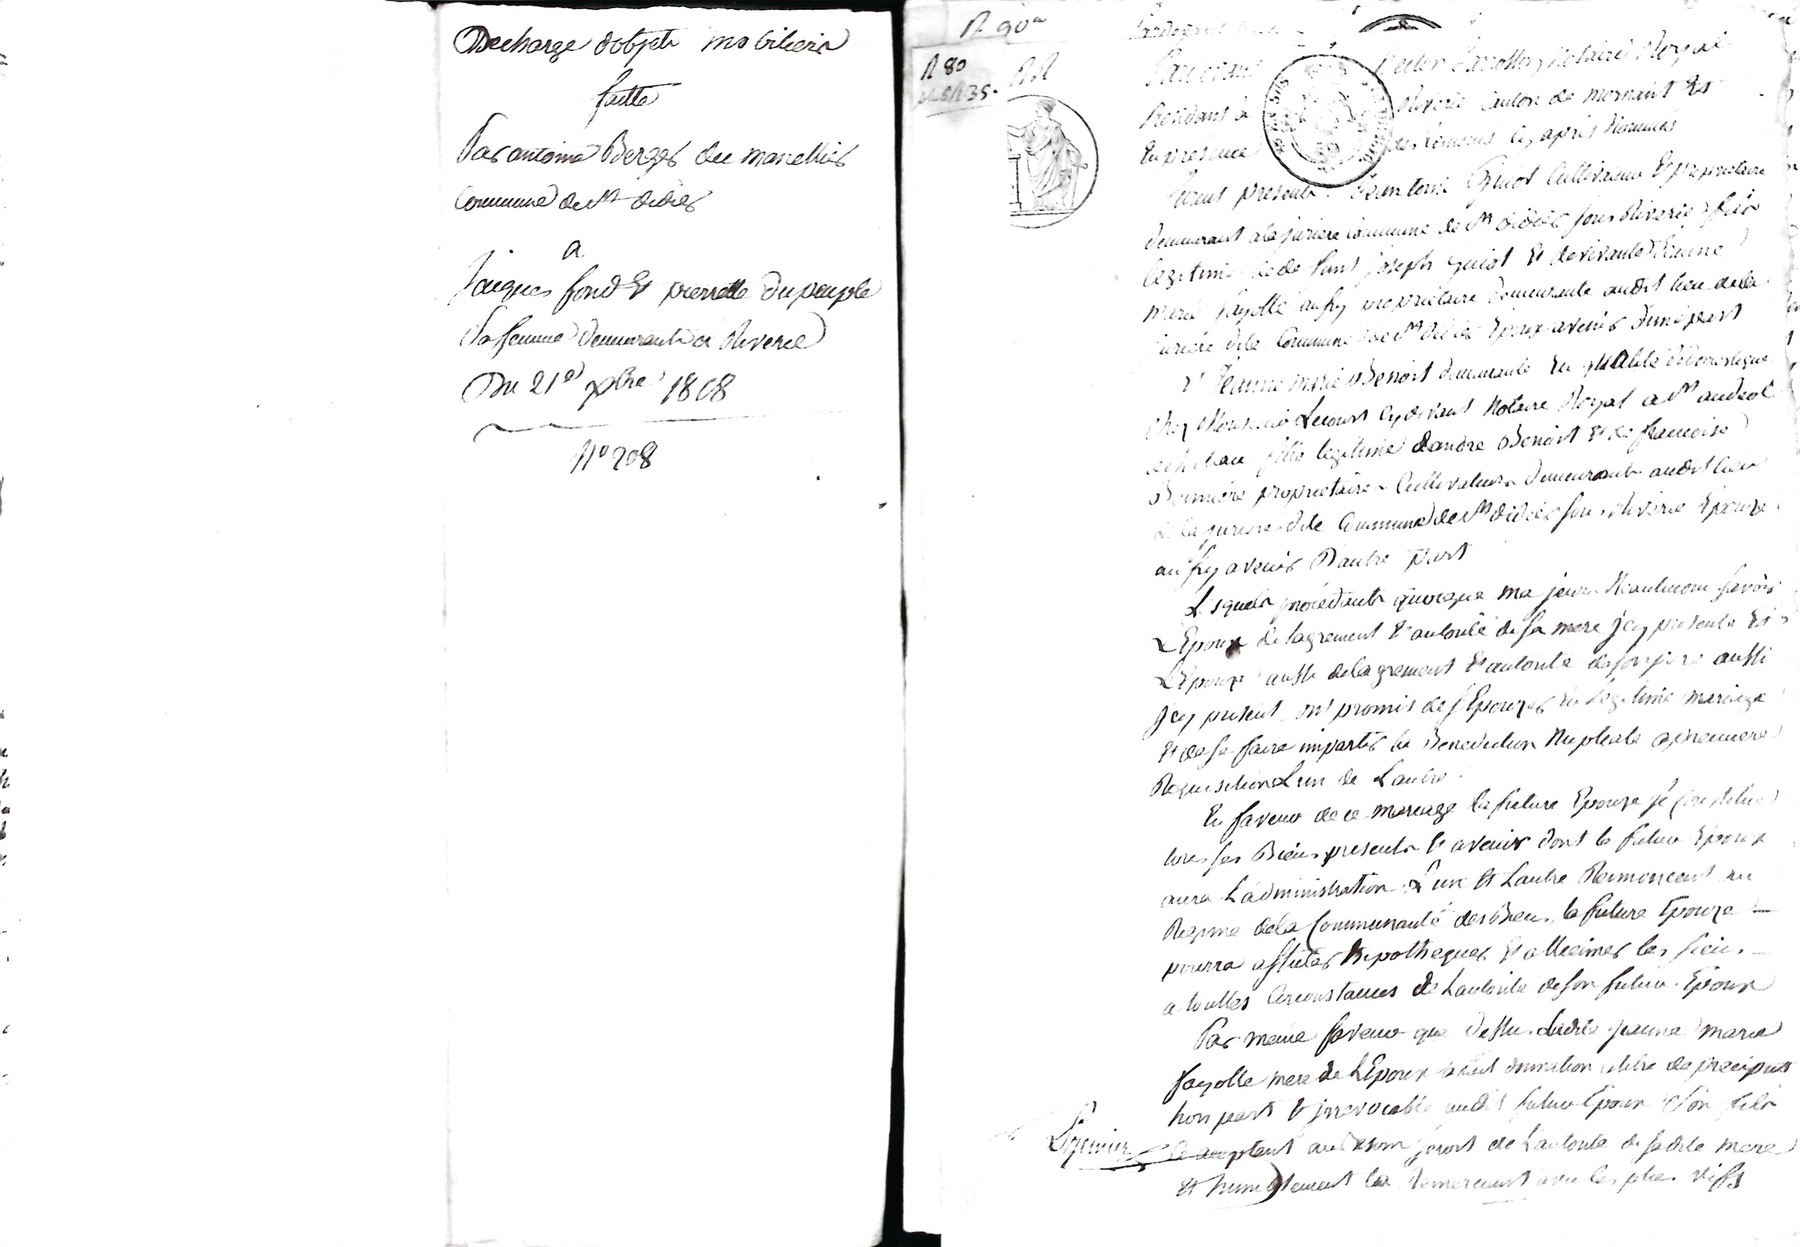 Decharge d'objets mobiliers
faitte
Par antoine Berger du manellier
Commune de St didier
a
Jaiques fond Et pierrette Dupeuple
Sa femme demeurants a Riverie
Du 21e xbre 1808
N° 208
R 90
R 80
Pardevant
Notaire Royal
Residant à Riverie Canton de mornant Et
En presence des temoins cy après Nommés
furent presents Jean Guiot Cultivateur Et proprietaire
demeurant a la juriere Commune de St didier sous Riverie fils
legitime de defunt joseph guiot Et de vivante Jeanne
marie fayolle aussy proprietaire demeurante audit lieu de la
juriere dite Commune de St didier Epoux avenir d'une part
Jeanne marie Benoit demeurante En qualité de domestique
chez Monsieur Cy devant Notaire Royal a St andeol
le chateau fille legitime d'andré Benoit Et de francoise
proprietaires Cultivateurs demeurants audit lieu
de la juriere dite Commune de St didier sous Riverie Epouze
aussy avenir D'autre part
Lesquels procedants quoique majeurs Neantmoins savoir
L'Epoux de lagrement Et autorité de sa mere jcy presente Et
L'Epouze aussi de lagrement Et autorité de son pere aussi
jcy present, ont promis de s'Epouzer En legitime mariage
Et de se faire impartir la Benediction Nuptiale a premiere
Requisition L'un de L'autre.
En faveur de ce mariage la future Epouze se Constitue
tous ses Biens presents Et avenir dont le futur Epoux
aura L'administration L'un Et Lautre Renoncent au
Regime de la Communauté des Biens, la future Epouze
pourra affecter hypothequer Et alliener les siens
a touttes Circonstances de Lautorité de son futur Epoux
Par meme faveur que dessus ladite jeanne marie
fayolle mere de L'Epoux a fait donnation a titre de preciput
hors part Et jrrevocable audit futur Epoux Son fils
acceptant de Lautorité de sadite mere
Et humblement la Remerciant avec les plus vifs